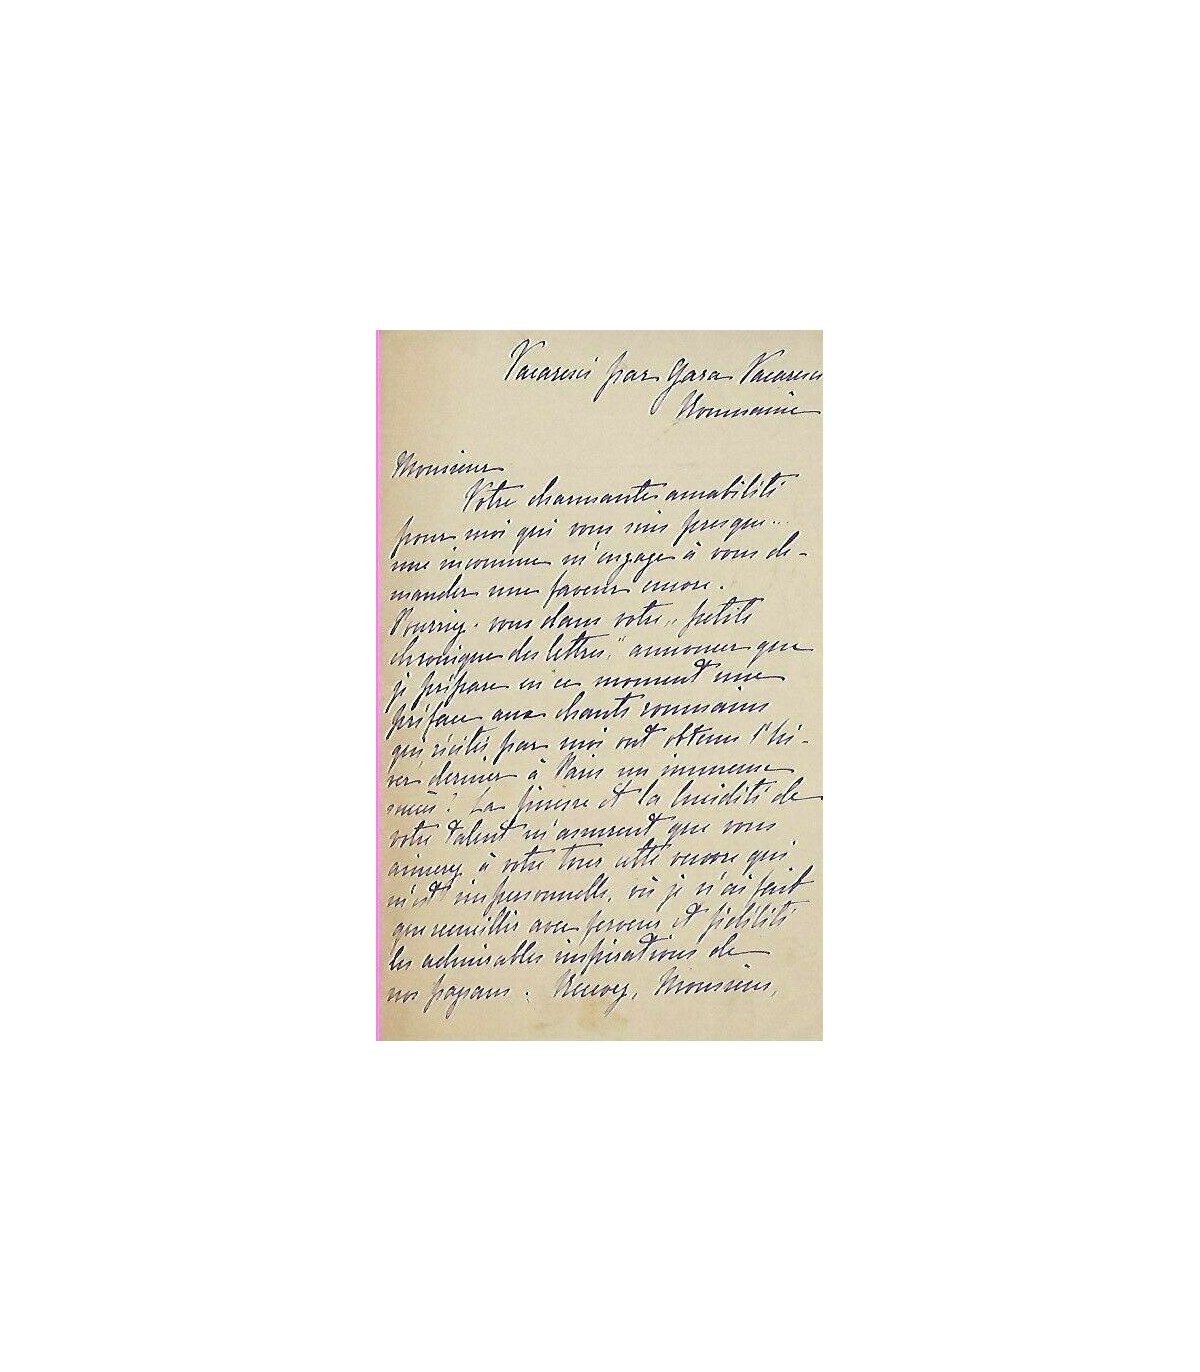 Vacaresci par Gara Vacaresci
Roumanie
Monsieur
Votre charmante amabilité
pour moi qui vous suis presque...
une inconnue m'engage à vous de-
mander une faveur encore.
Pourriez-vous dans votre „petite
chronique des lettres," annoncer que
je prépare en ce moment une
préface aux chants roumains
qui, récités par moi ont obtenu l'hi-
ver dernier à Paris un immense
succès? La finesse et la lucidité de
votre talent m'assurent que vous
aimerez à votre tour cette œuvre qui
m'est impersonnelle, où je n'ai fait
que recueillir avec ferveur et fidélité
les admirables inspirations de
nos paysans. Recevez, Monsieur,